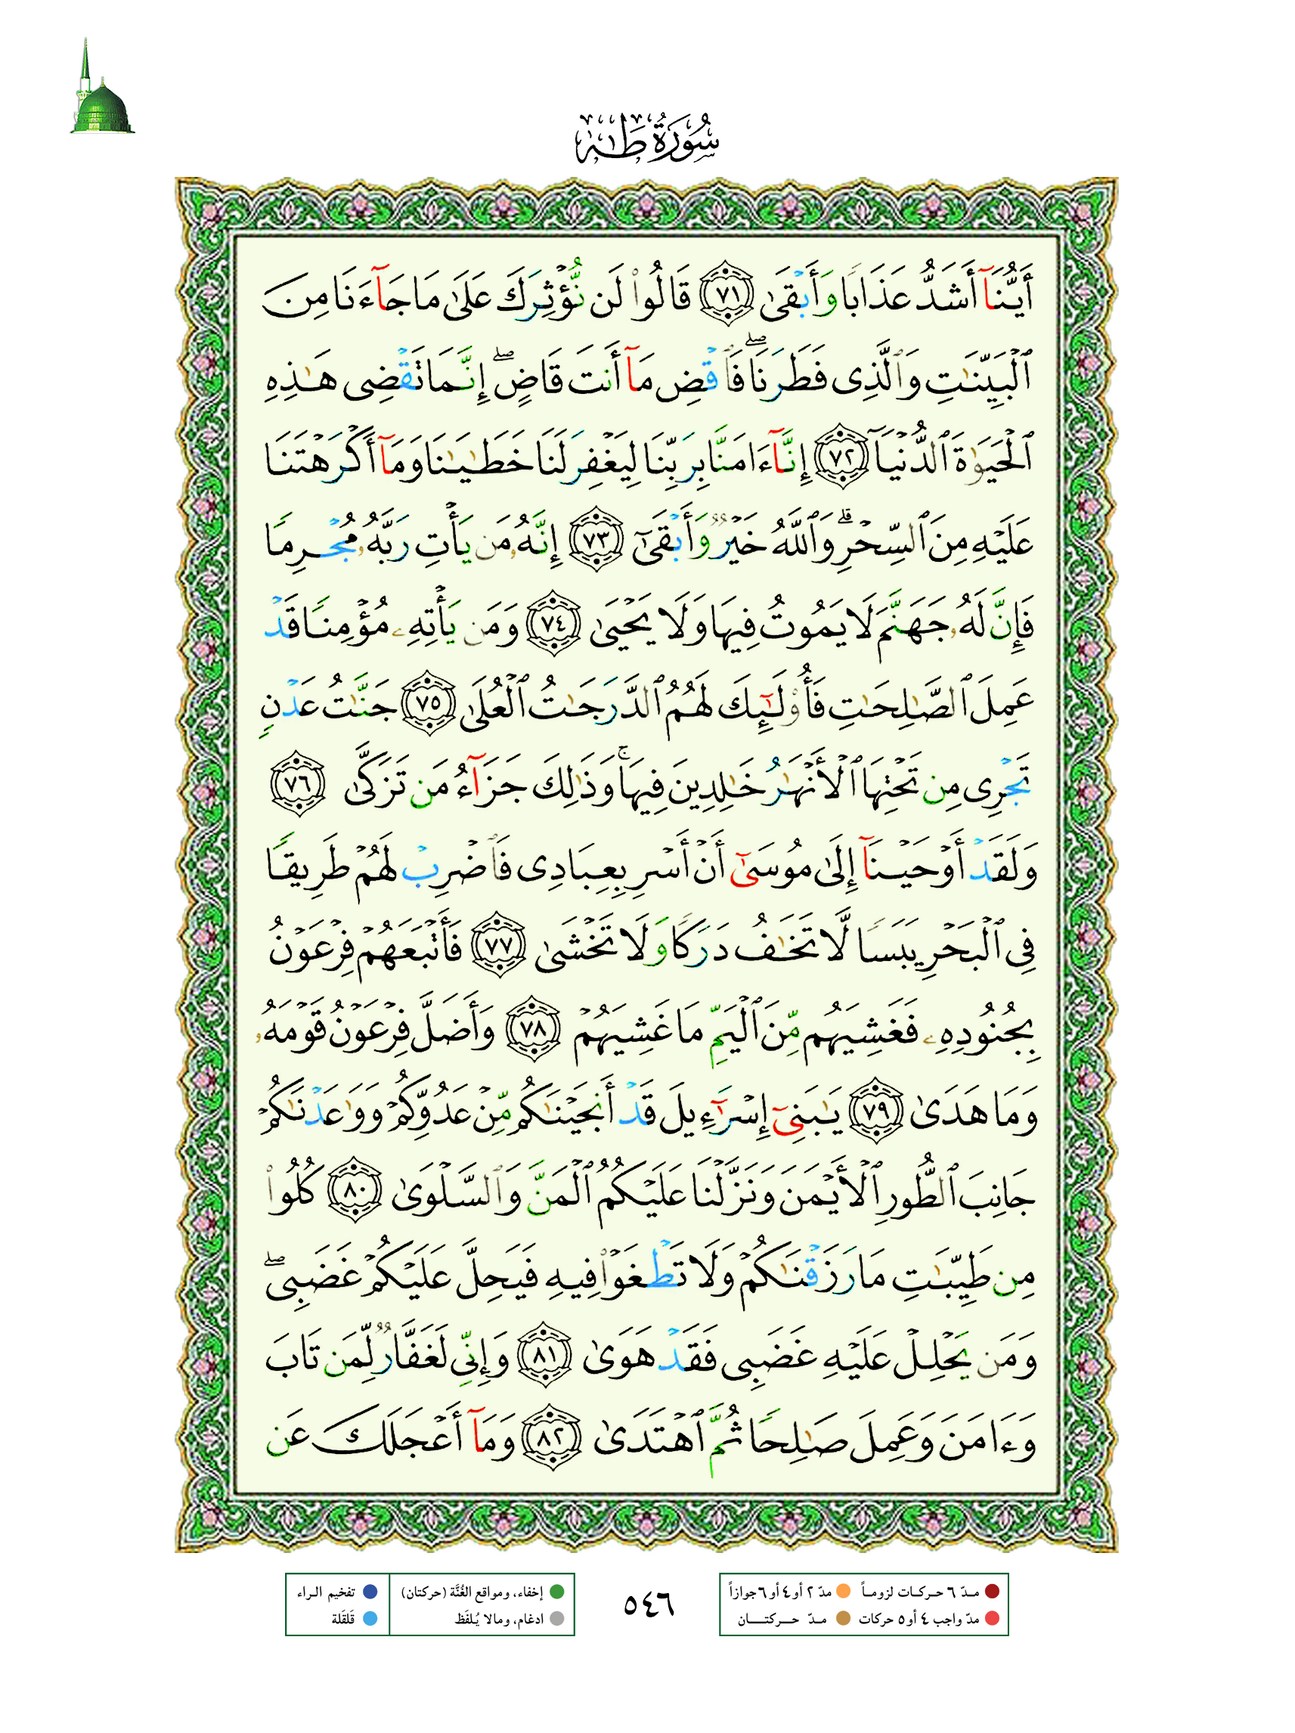 سُورَةُ طَهٰ
أَيُّنَآ أَشَدُّ عَذَابًا وَأَبْقَىٰ ﴿٧١﴾ قَالُوا۟ لَن نُّؤْثِرَكَ عَلَىٰ مَا جَآءَنَا مِنَ
ٱلْبَيِّنَـٰتِ وَٱلَّذِى فَطَرَنَا ۖ فَٱقْضِ مَآ أَنتَ قَاضٍ ۖ إِنَّمَا تَقْضِى هَـٰذِهِ
ٱلْحَيَوٰةَ ٱلدُّنْيَآ ﴿٧٢﴾ إِنَّآ ءَامَنَّا بِرَبِّنَا لِيَغْفِرَ لَنَا خَطَـٰيَـٰنَا وَمَآ أَكْرَهْتَنَا
عَلَيْهِ مِنَ ٱلسِّحْرِ ۗ وَٱللَّهُ خَيْرٌ وَأَبْقَىٰٓ ﴿٧٣﴾ إِنَّهُۥ مَن يَأْتِ رَبَّهُۥ مُجْرِمًا
فَإِنَّ لَهُۥ جَهَنَّمَ لَا يَمُوتُ فِيهَا وَلَا يَحْيَىٰ ﴿٧٤﴾ وَمَن يَأْتِهِۦ مُؤْمِنًا قَدْ
عَمِلَ ٱلصَّـٰلِحَـٰتِ فَأُو۟لَـٰٓئِكَ لَهُمُ ٱلدَّرَجَـٰتُ ٱلْعُلَىٰ ﴿٧٥﴾ جَنَّـٰتُ عَدْنٍ
تَجْرِى مِن تَحْتِهَا ٱلْأَنْهَـٰرُ خَـٰلِدِينَ فِيهَا ۚ وَذَٰلِكَ جَزَآءُ مَن تَزَكَّىٰ ﴿٧٦﴾
وَلَقَدْ أَوْحَيْنَآ إِلَىٰ مُوسَىٰٓ أَنْ أَسْرِ بِعِبَادِى فَٱضْرِبْ لَهُمْ طَرِيقًا
فِى ٱلْبَحْرِ يَبَسًا لَّا تَخَـٰفُ دَرَكًا وَلَا تَخْشَىٰ ﴿٧٧﴾ فَأَتْبَعَهُمْ فِرْعَوْنُ
بِجُنُودِهِۦ فَغَشِيَهُم مِّنَ ٱلْيَمِّ مَا غَشِيَهُمْ ﴿٧٨﴾ وَأَضَلَّ فِرْعَوْنُ قَوْمَهُۥ
وَمَا هَدَىٰ ﴿٧٩﴾ يَـٰبَنِىٓ إِسْرَٰٓءِيلَ قَدْ أَنجَيْنَـٰكُم مِّنْ عَدُوِّكُمْ وَوَٰعَدْنَـٰكُمْ
جَانِبَ ٱلطُّورِ ٱلْأَيْمَنَ وَنَزَّلْنَا عَلَيْكُمُ ٱلْمَنَّ وَٱلسَّلْوَىٰ ﴿٨٠﴾ كُلُوا۟
مِن طَيِّبَـٰتِ مَا رَزَقْنَـٰكُمْ وَلَا تَطْغَوْا۟ فِيهِ فَيَحِلَّ عَلَيْكُمْ غَضَبِى ۖ
وَمَن يَحْلِلْ عَلَيْهِ غَضَبِى فَقَدْ هَوَىٰ ﴿٨١﴾ وَإِنِّى لَغَفَّارٌ لِّمَن تَابَ
وَءَامَنَ وَعَمِلَ صَـٰلِحًا ثُمَّ ٱهْتَدَىٰ ﴿٨٢﴾ وَمَآ أَعْجَلَكَ عَن
مـدّ ٦ حـركـات لزومـاً مدّ ٢ أو ٤ أو ٦ جوازاً
مدّ واجب ٤ أو ٥ حركات مـدّ حـــركتـــــان
٥٤٦
إخفاء، ومواقع الغُنَّة (حركتان) تفخيم الـراء
ادغام، ومالا يُـلفَظ قَلقَلة